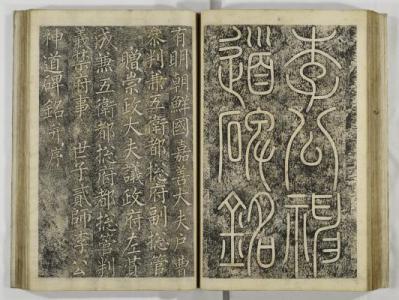 李公神
道碑銘
有明朝鮮國嘉善大夫戶曹
叅判兼五衛都揔府副揔管
贈崇政大夫議政府左贊
成兼五衛都揔府都揔管判
義禁府事 世子貳師李公
神道碑銘 并序